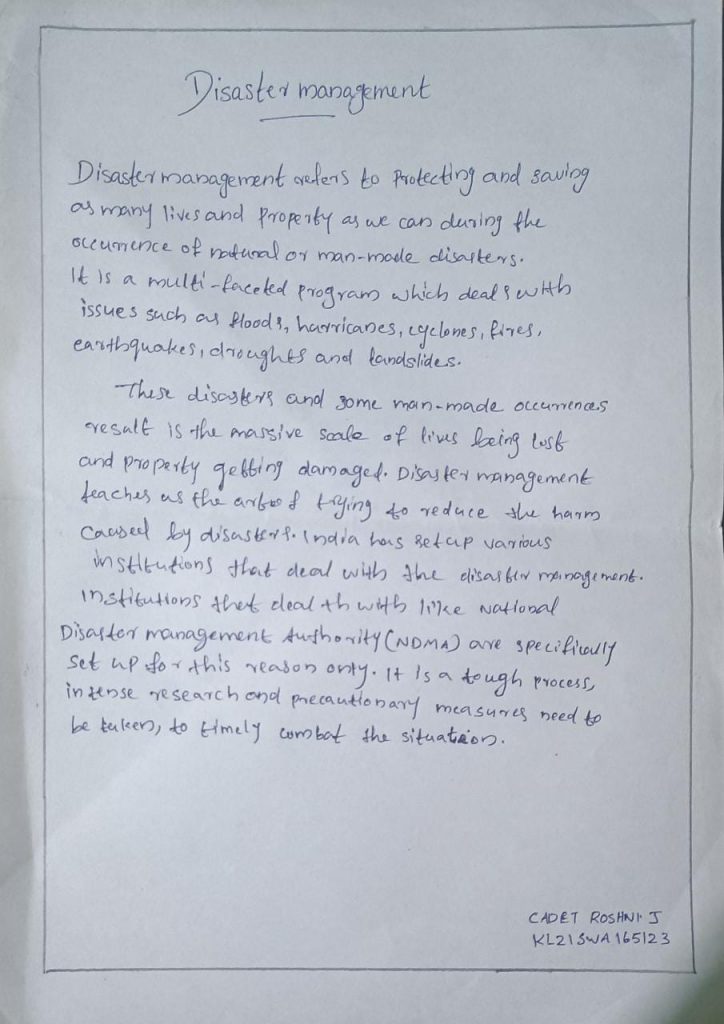 Disaster management
Disaster management refers to Protecting and saving
as many lives and Property as we can during the
occurrence of natural or man-made disasters.
It is a multi-faceted program which deals with
issues such as floods, hurricanes, cyclones, fires,
earthquakes, droughts and landslides.
These disasters and some man-made occurrences
result is the massive scale of lives being lost
and property getting damaged. Disaster management
teaches us the art of trying to reduce the harm
caused by disasters. India has setup various
institutions that deal with the disaster management.
Institutions that deal th with like National
Disaster management Authority (NDMA) are specifically
set up for this reason only. It is a tough process,
intense research and precautionary measures need to
be taken, to timely combat the situation.
CADET ROSHNI J
KL21SWA165123